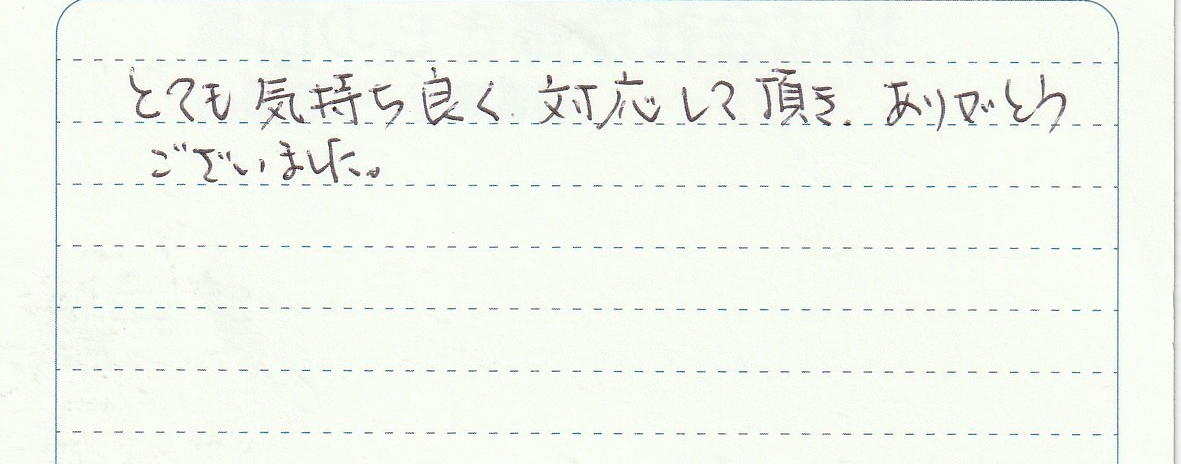 とても気持ち良く対応して頂き、ありがとう
ございました。